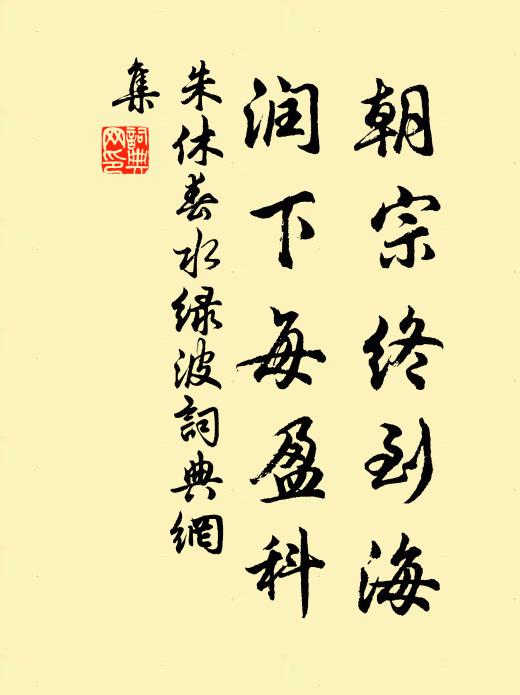 朝宗终到海
润下每盈科
朱休春水绿波詞典網
集
詞典网印